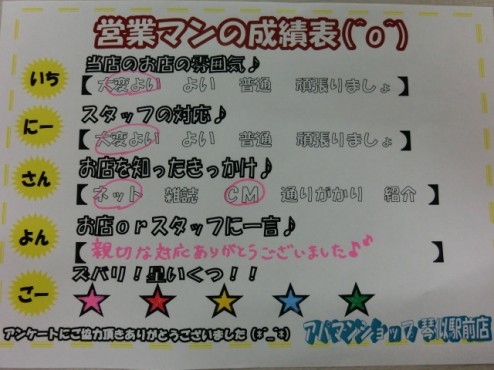 営業マンの成績表(^o^)
いち 当店のお店の雰囲気♪
【 大変よい よい 普通 頑張りましょ 】
にー スタッフの対応♪
【 大変よい よい 普通 頑張りましょ 】
さん お店を知ったきっかけ♪
【 ネット 雑誌 CM 通りがかり 紹介 】
よん お店orスタッフに一言♪
【 親切な対応ありがとうございました♪ 】
ごー ズバリ!星いくつ!!
アンケートにご協力頂きありがとうございました
アパマンショップ琴似駅前店